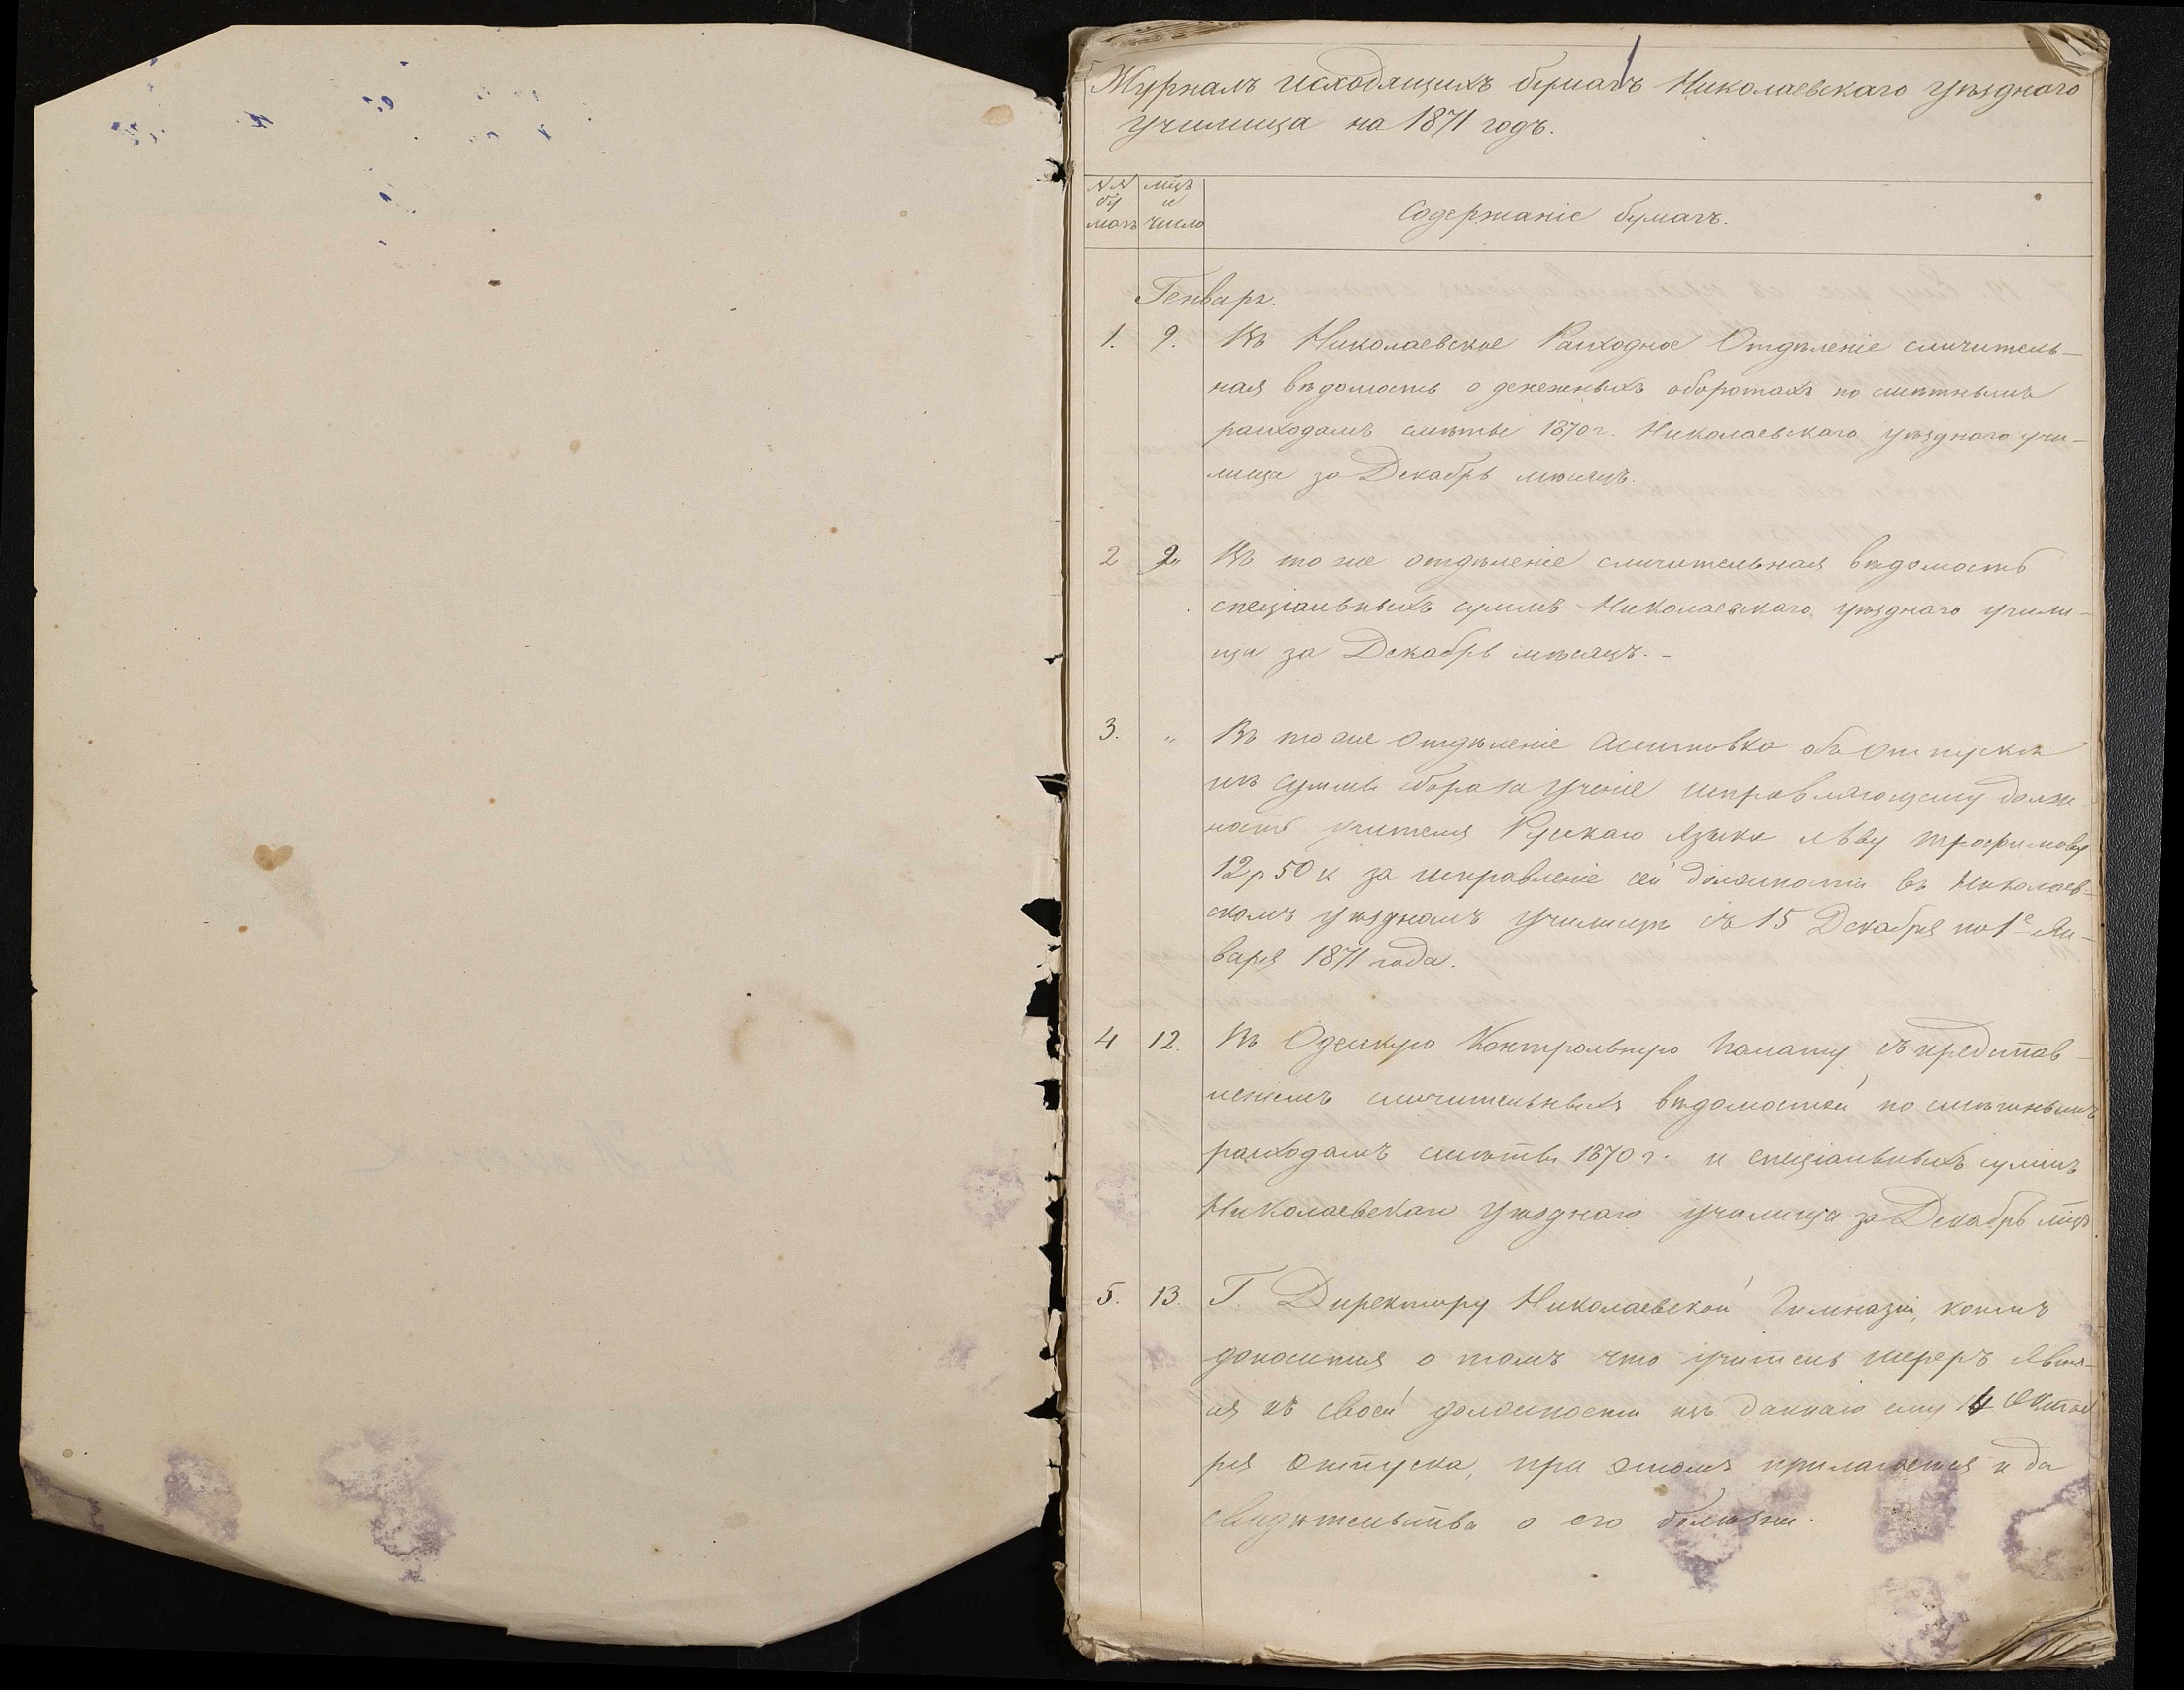 Журналъ исходящихъ бумагъ Николаевскаго уѣзднаго
училища на 1871 годъ.
NN мцъ
бу и
магъ число
Содержаніе бумагъ.
Генварь.
1. 9. Въ Николаевское Расходное Отдѣленіе сличитель-
ная вѣдомость о денежныхъ оборотахъ по смѣтнымъ
расходамъ смѣты 1870 г. Николаевскаго уѣзднаго учи-
лища за Декабрь мѣсяцъ.
2 9 Въ тоже отдѣленіе сличительная вѣдомость
спеціальныхъ суммъ Николаевскаго уѣзднаго учили-
ща за Декабрь мѣсяцъ. -
3. „ Въ тоже Отдѣленіе Асигновка объ отпускѣ
изъ суммы сбора за ученіе исправляющему долж
ность учителя Русскаго языка Льву Трофимову
12 р 50 к за исправленіе сей должности въ Николаев-
скомъ уѣздномъ училищѣ съ 15 Декабря по 1е Ян-
варя 1871 года.
4 12. Въ Одесскую Контрольную Палату съ представ-
леніемъ сличительныхъ вѣдомостей по смѣтнымъ
расходамъ смѣты 1870 г. и спеціальныхъ суммъ
Николаевскаго Уѣзднаго училища за Декабрь мцъ
5. 13. Г. Директору Николаевской Гимназіи, коимъ
доносится о томъ что учитель явил-
ся къ своей должности изъ даннаго ему Октяб
ря отпуска, при этомъ прилагается и
свидѣтельства о его болѣзни.